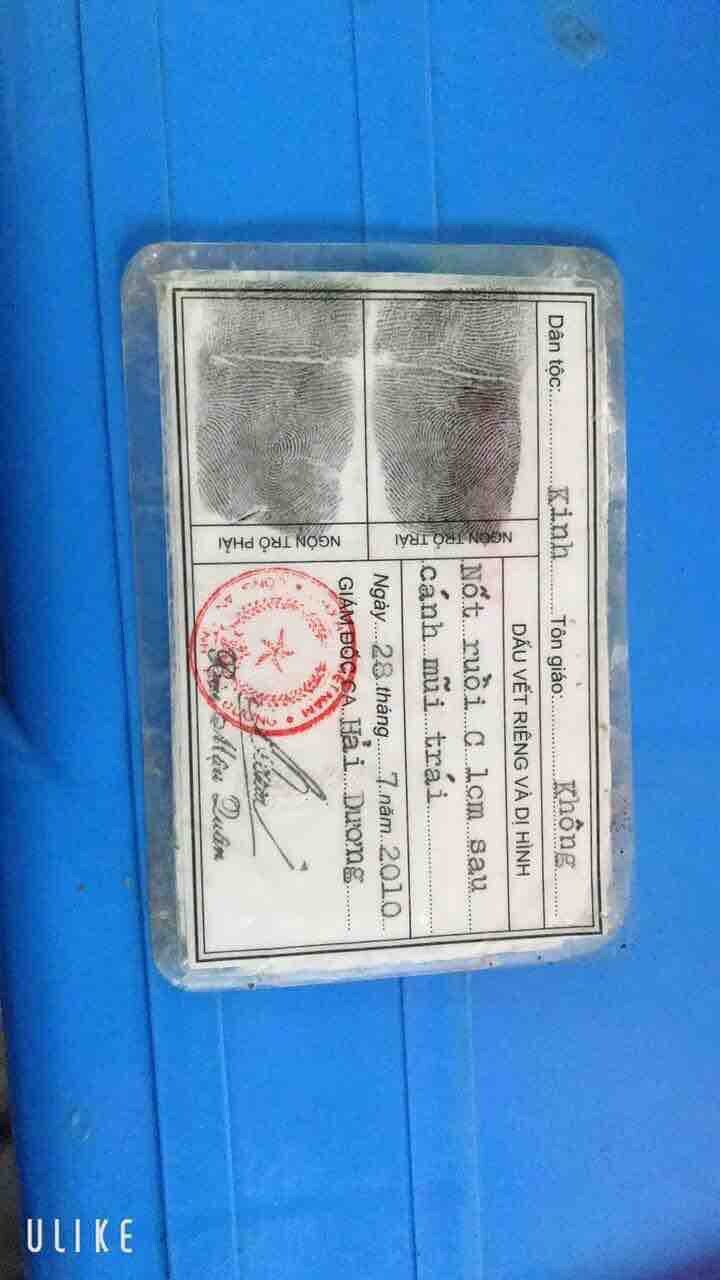 Dân tộc: Kinh Tôn giáo: Không
DẤU VẾT RIÊNG VÀ DỊ HÌNH
Nốt ruồi C 1cm sau
cánh mũi trái
NGÓN TRỎ TRÁI
NGÓN TRỎ PHẢI
Ngày 28 tháng 7 năm 2010
GIÁM ĐỐC CA Hải Dương
ULIKE